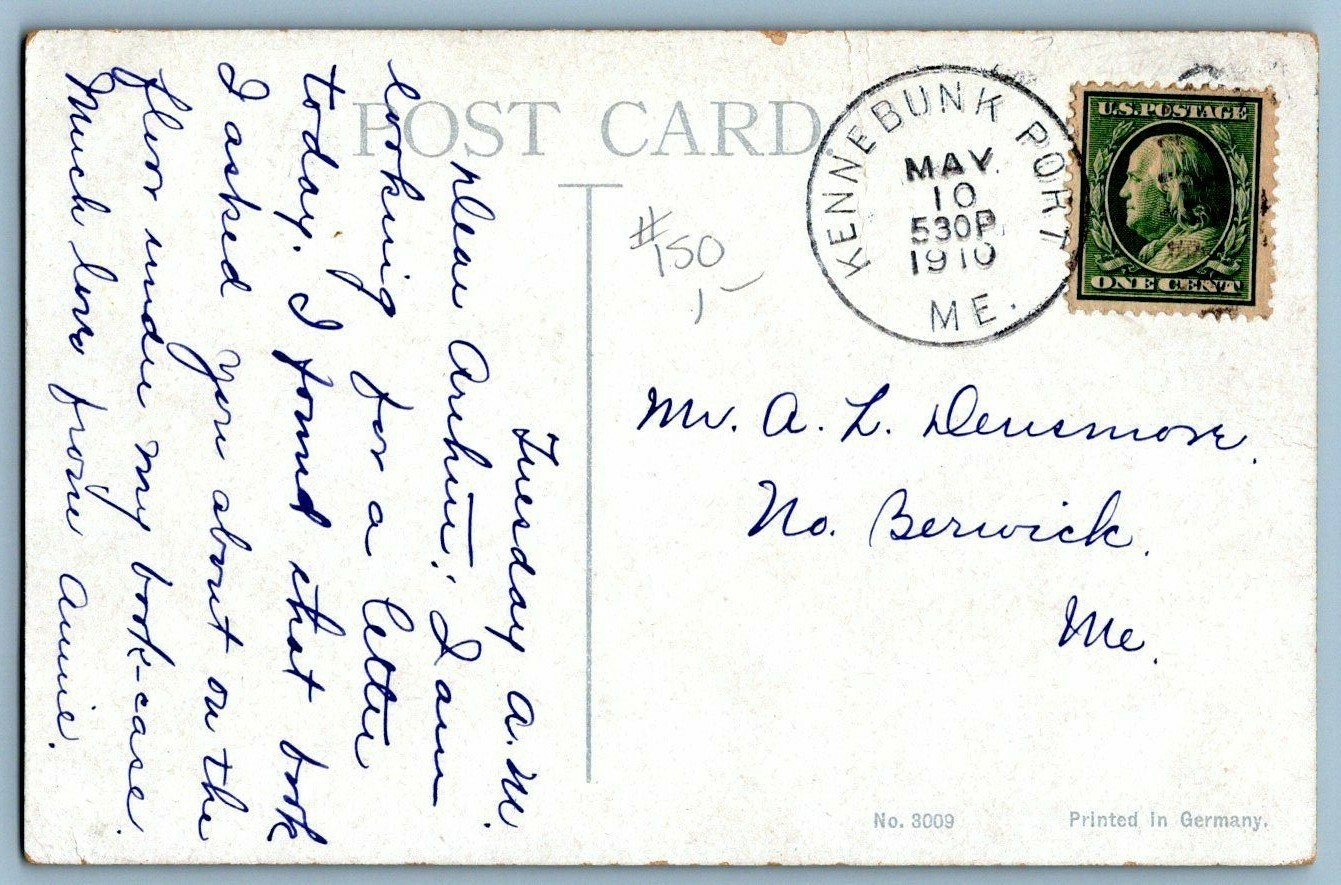 POST CARD
Tuesday A.M.
Dear Arthur: I am
looking for a letter
today. I found that book
I asked you about on the
floor under my book-case.
Much love from Annie.
KENNEBUNK PORT
MAY
10
530P
1910
ME.
U.S. POSTAGE
ONE CENT
#150
Mr. A. L. Densmore.
No. Berwick.
Me.
No. 3009
Printed in Germany.